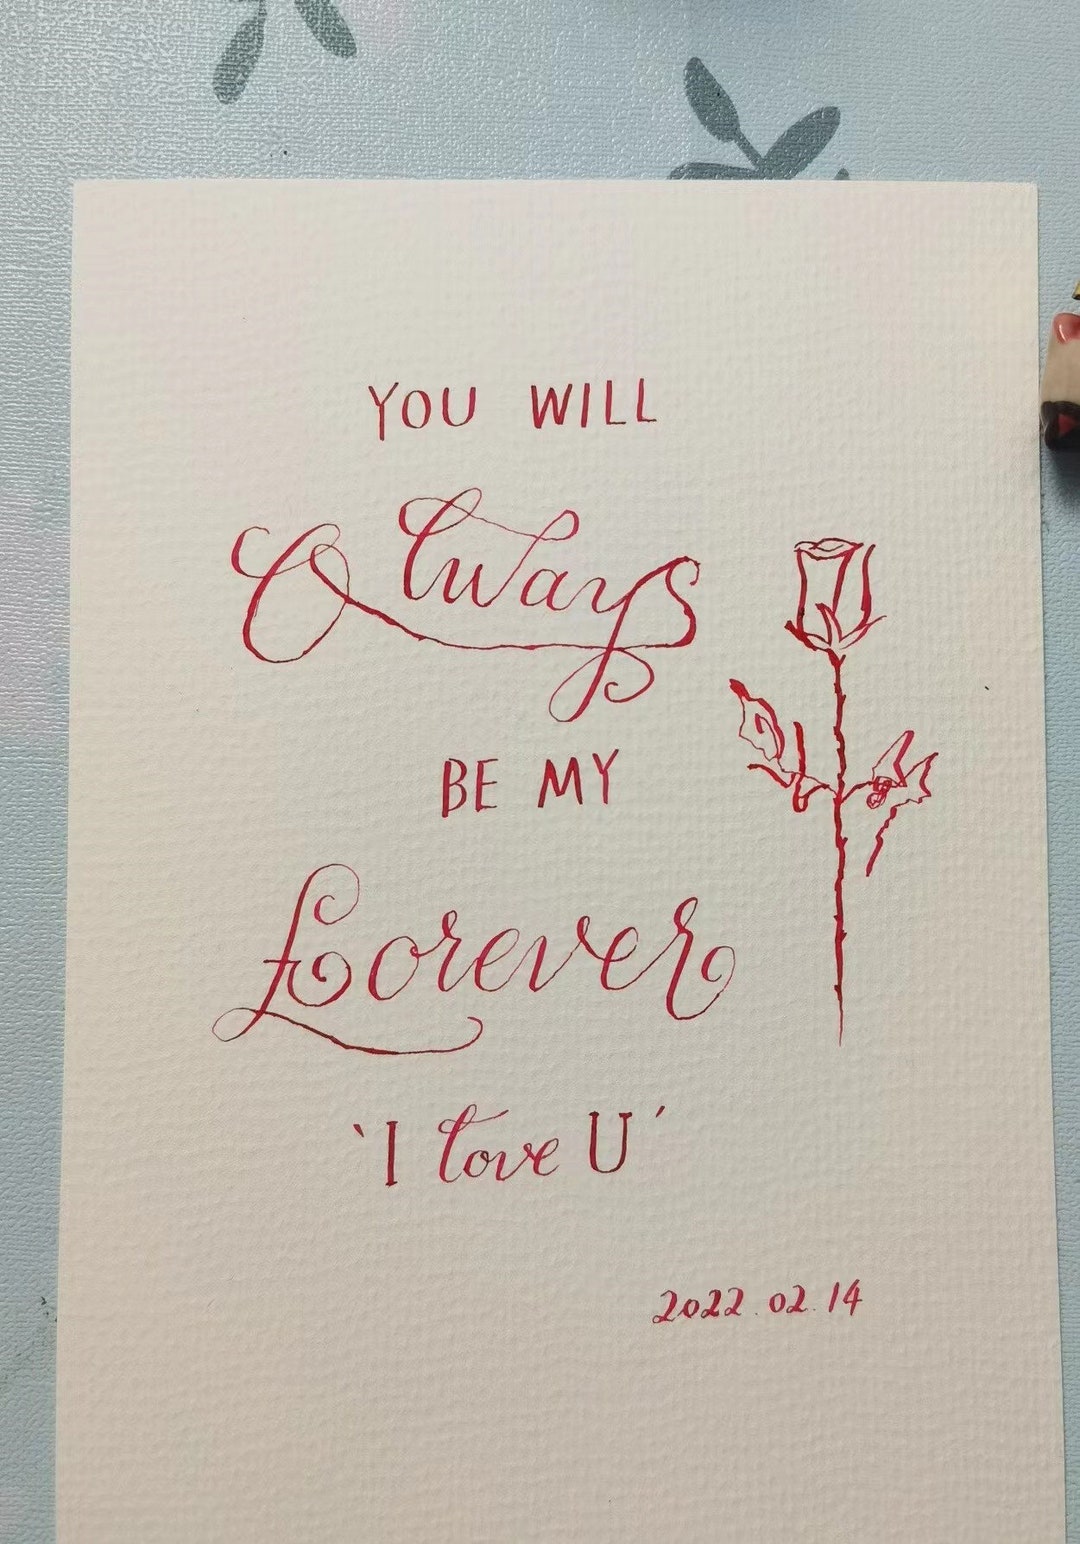 YOU WILL
Always
BE MY
Forever
‵I love U′
2022.02.14